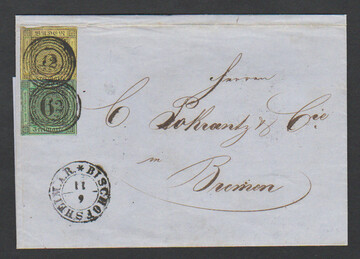 Herren
C. Lokrantz & Cie
in
Bremen
BISCHOFSHEIM A.R.
11
9
12